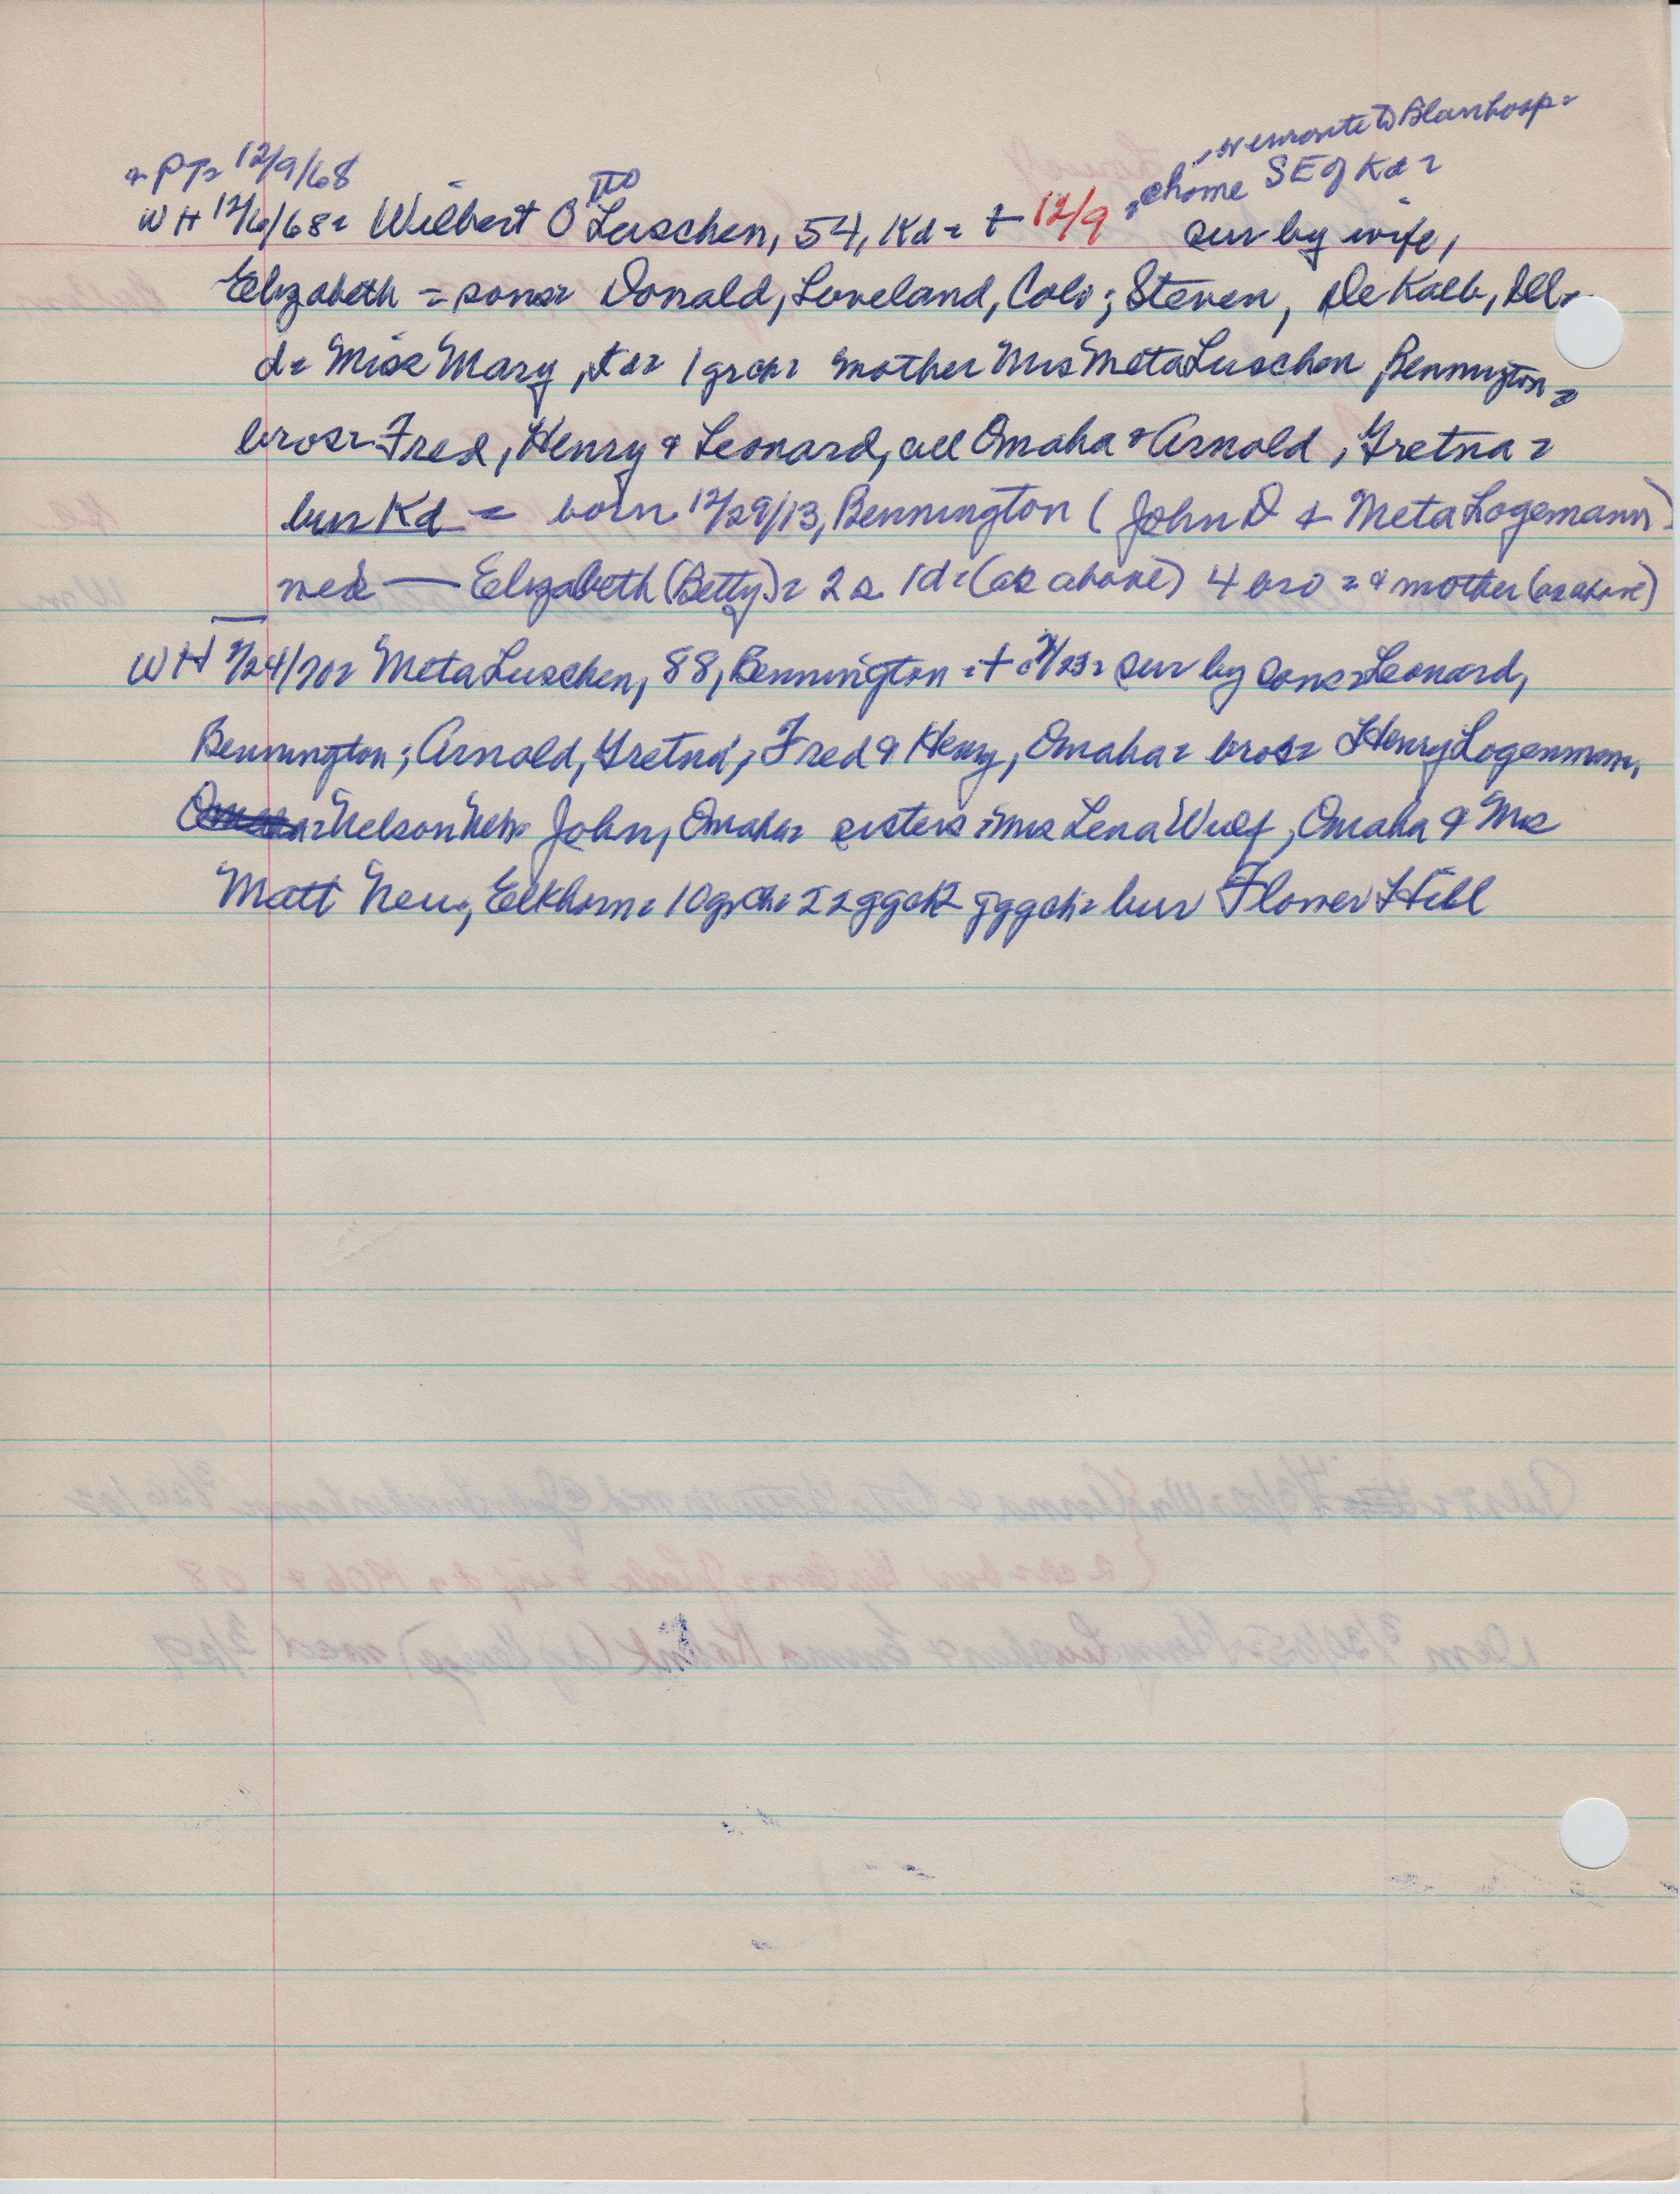 , enroute to Blair hosp =
= PT = 12/9/68
= home SE of Kd =
WH 12/6/68 = Wilbert O tto Luschen, 54, Kd = + 12/9 sur by wife,
Elizabeth = sons = Donald, Loveland, Colo; Steven, DeKalb, Ill =
d = Miss Mary, Kd = 1 grch = mother Mrs Meta Luschen, Bennington =
bros = Fred, Henry & Leonard, all Omaha & Arnold, Gretna =
bur Kd = born 12/29/13, Bennington (John D & Meta Logemann)
med — Elizabeth (Betty) = 2 s 1d = (as above) 4 bro = & mother (as above)
WH /24/70 = Meta Luschen, 88, Bennington = + /23 = sur by sons = Leonard,
Bennington; Arnold, Gretna; Fred & Henry, Omaha = bros = Henry Logenmann,
Nelson Neb = John, Omaha = sisters = Mrs Lena Wulf, Omaha & Mrs
Matt Neu, Elkhorn = 10 grch = 22 ggch = gggch = bur Flower Hill